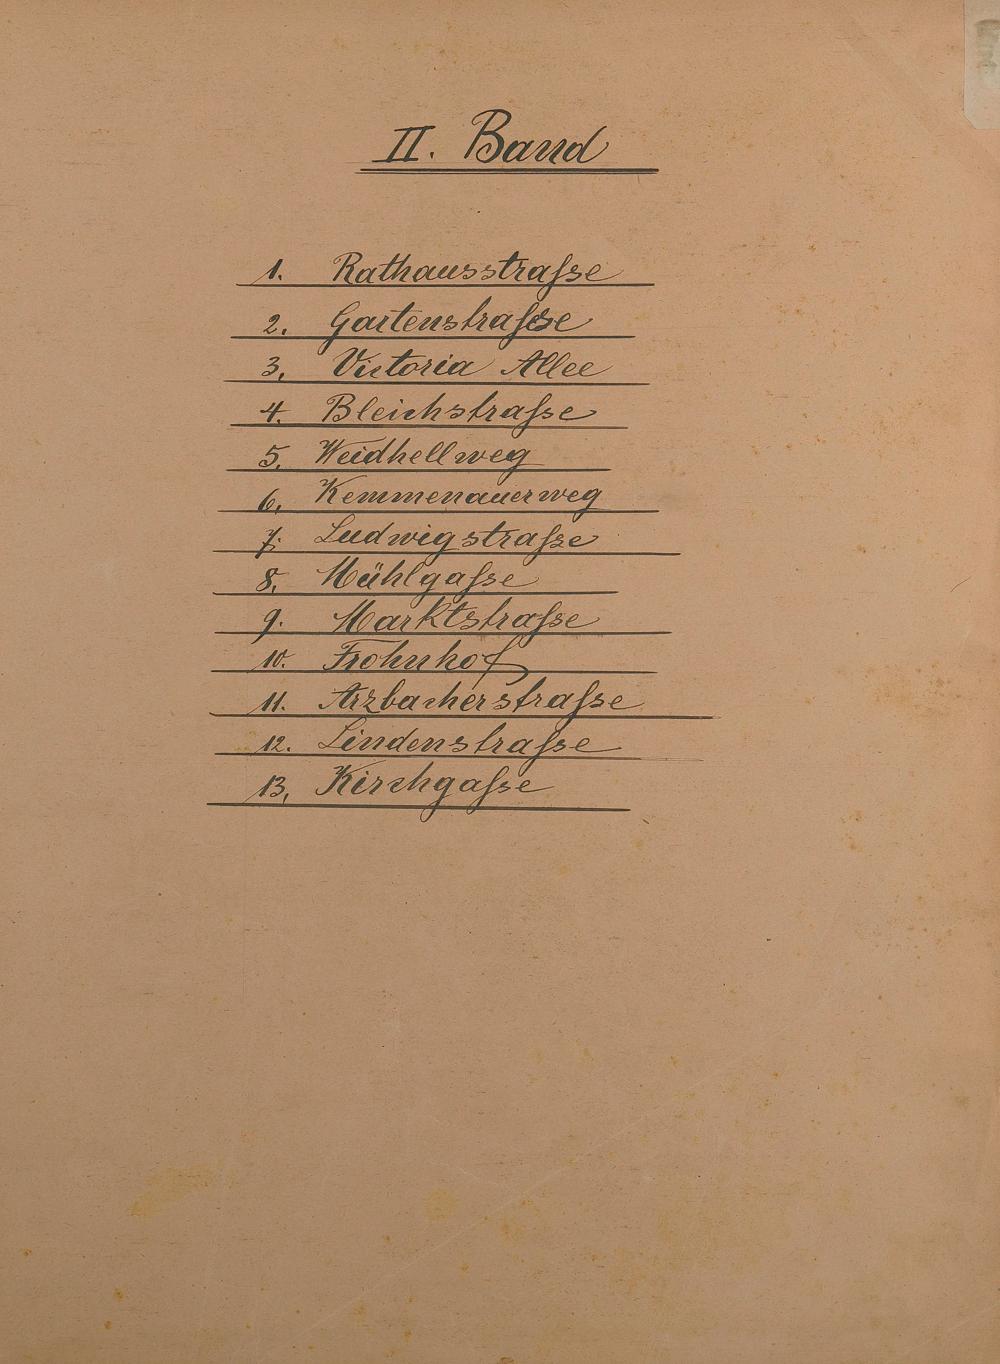 II. Band
1. Rathausstraſse
2. Gartenstraſse
3. Victoria Allee
4. Bleichstraſse
5. Weidhellweg
6. Kemmenauerweg
7. Ludwigstraſse
8. Mühlgaſse
9. Marktstraſse
10. Frohnhof
11. Arzbacherstraſse
12. Lindenstraſse
13. Kirchgaſse